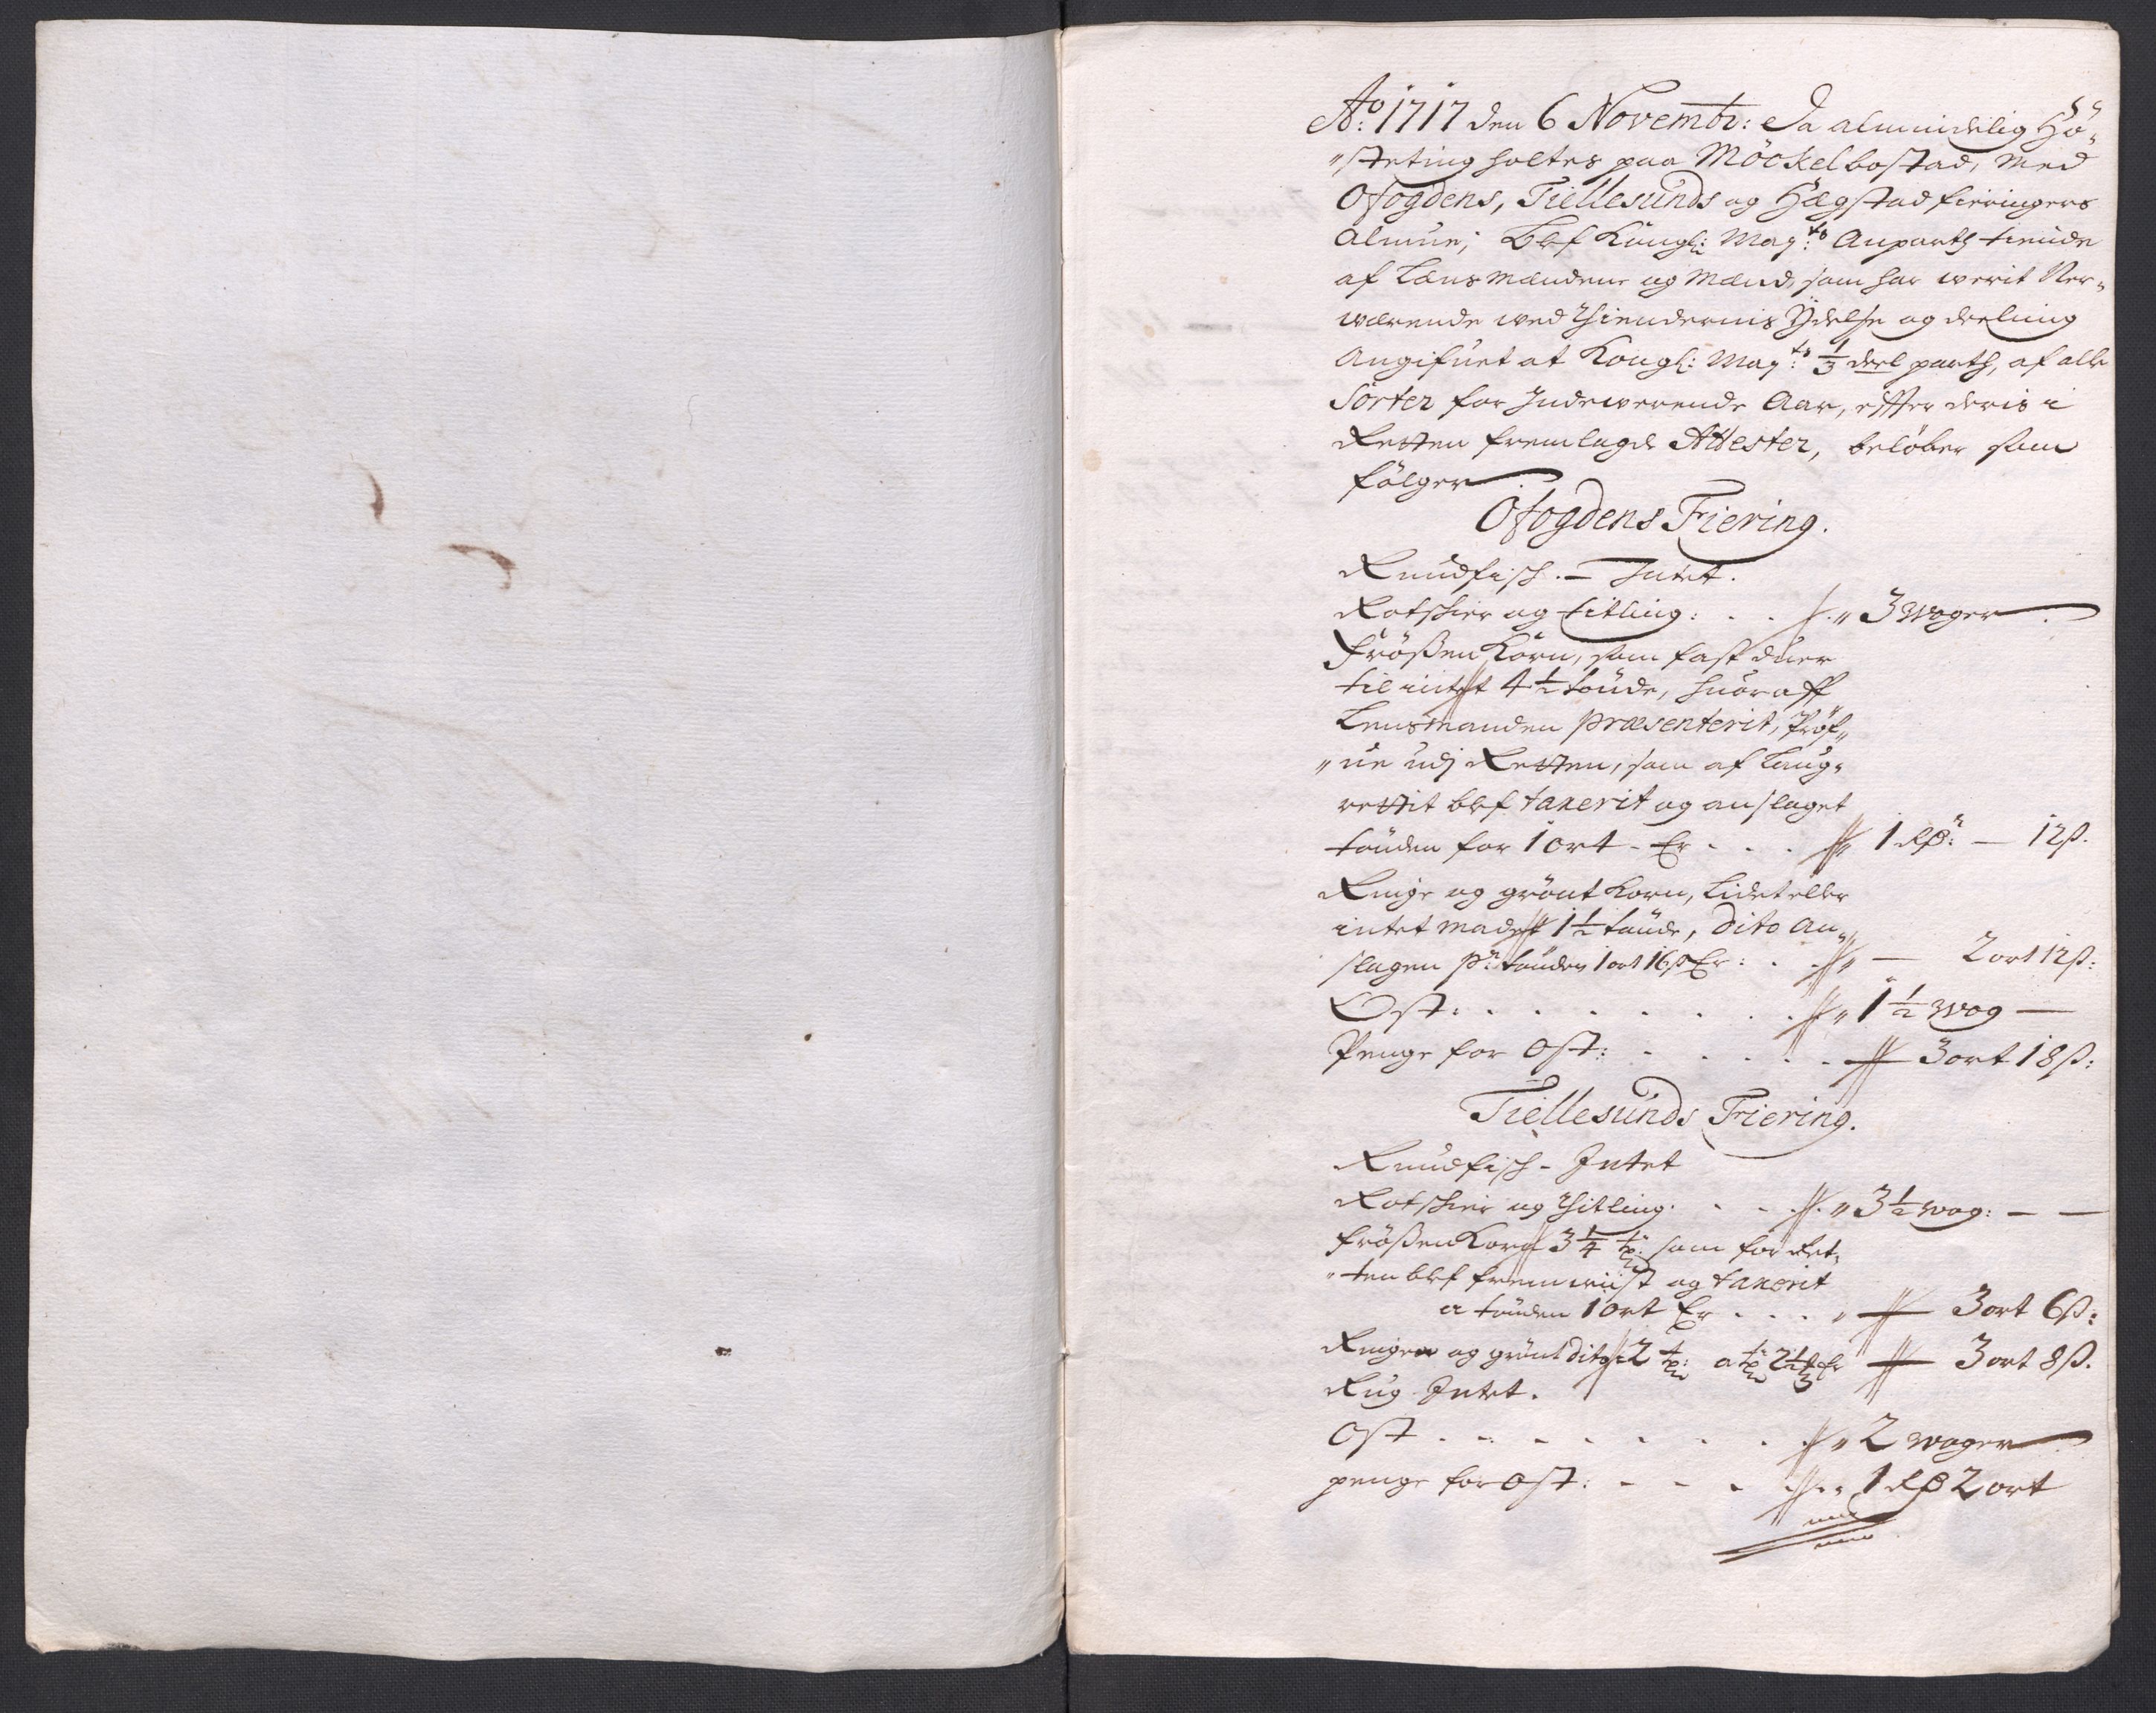 Ao: 1717 den 6 Novembr: Da almindelig Hö-
"steting holtes paa Möckelbostad, med
Ofogdens, Tiellesunds og Hægstad fieringers
Almue; blef Kongl: Mayts: Anparts tiende
af Lænsmændene og Mænd, som har werit Ner-
wærende wed Thiendernis Ÿdelse og deeling
Angifuet at Kongl: Mayts: 1/3 deel parth, af alle
Sorter for Indewerende Aar, effter deris i
Retten fremlagde Attester, belöber som
fölger
Ofogdens Fiering.
Rundfisch. - Intet.
Rotskier og titling: . . . " 3 woger
Frößen Korn, som fast duer
til intet 4 1/2 tönde, huoraff
Lensmanden præsenterit, Pröf-
"ue udj Retten, som af Laug-
rettit blef taxerit og anslaget
tönden for 1 ort - Er . . . 1 Rdr: — 12 ß.
Ringe og grönt Korn, Lidet eller
intet madet 1 1/2 tönde, dito an-
slagen pr: tönden 1 ort 16 ß Er: . . " — 2 ort 12 ß:
Ost: . . . . . . . " 1 1/2 wog —
Penge for Ost: . . . . . — 3 ort 18 ß:
Tiellesunds Fiering.
Rundfisch - Intet
Rotskier og Thitling. . . . " 3 1/2 wog: — —
Frößen Korn 3 1/4 tr: som for Ret-
"ten blef fremwiist og taxerit
a tönden 1 ort Er . . . . — 3 ort 6 ß:
Ringe og grönt dito 2 tr: a tr: Er — 3 ort 8 ß.
Rug Intet.
Ost . . . . . . . . " 2 woger
penge for Ost: . . . . " 1 Rd 2 ort